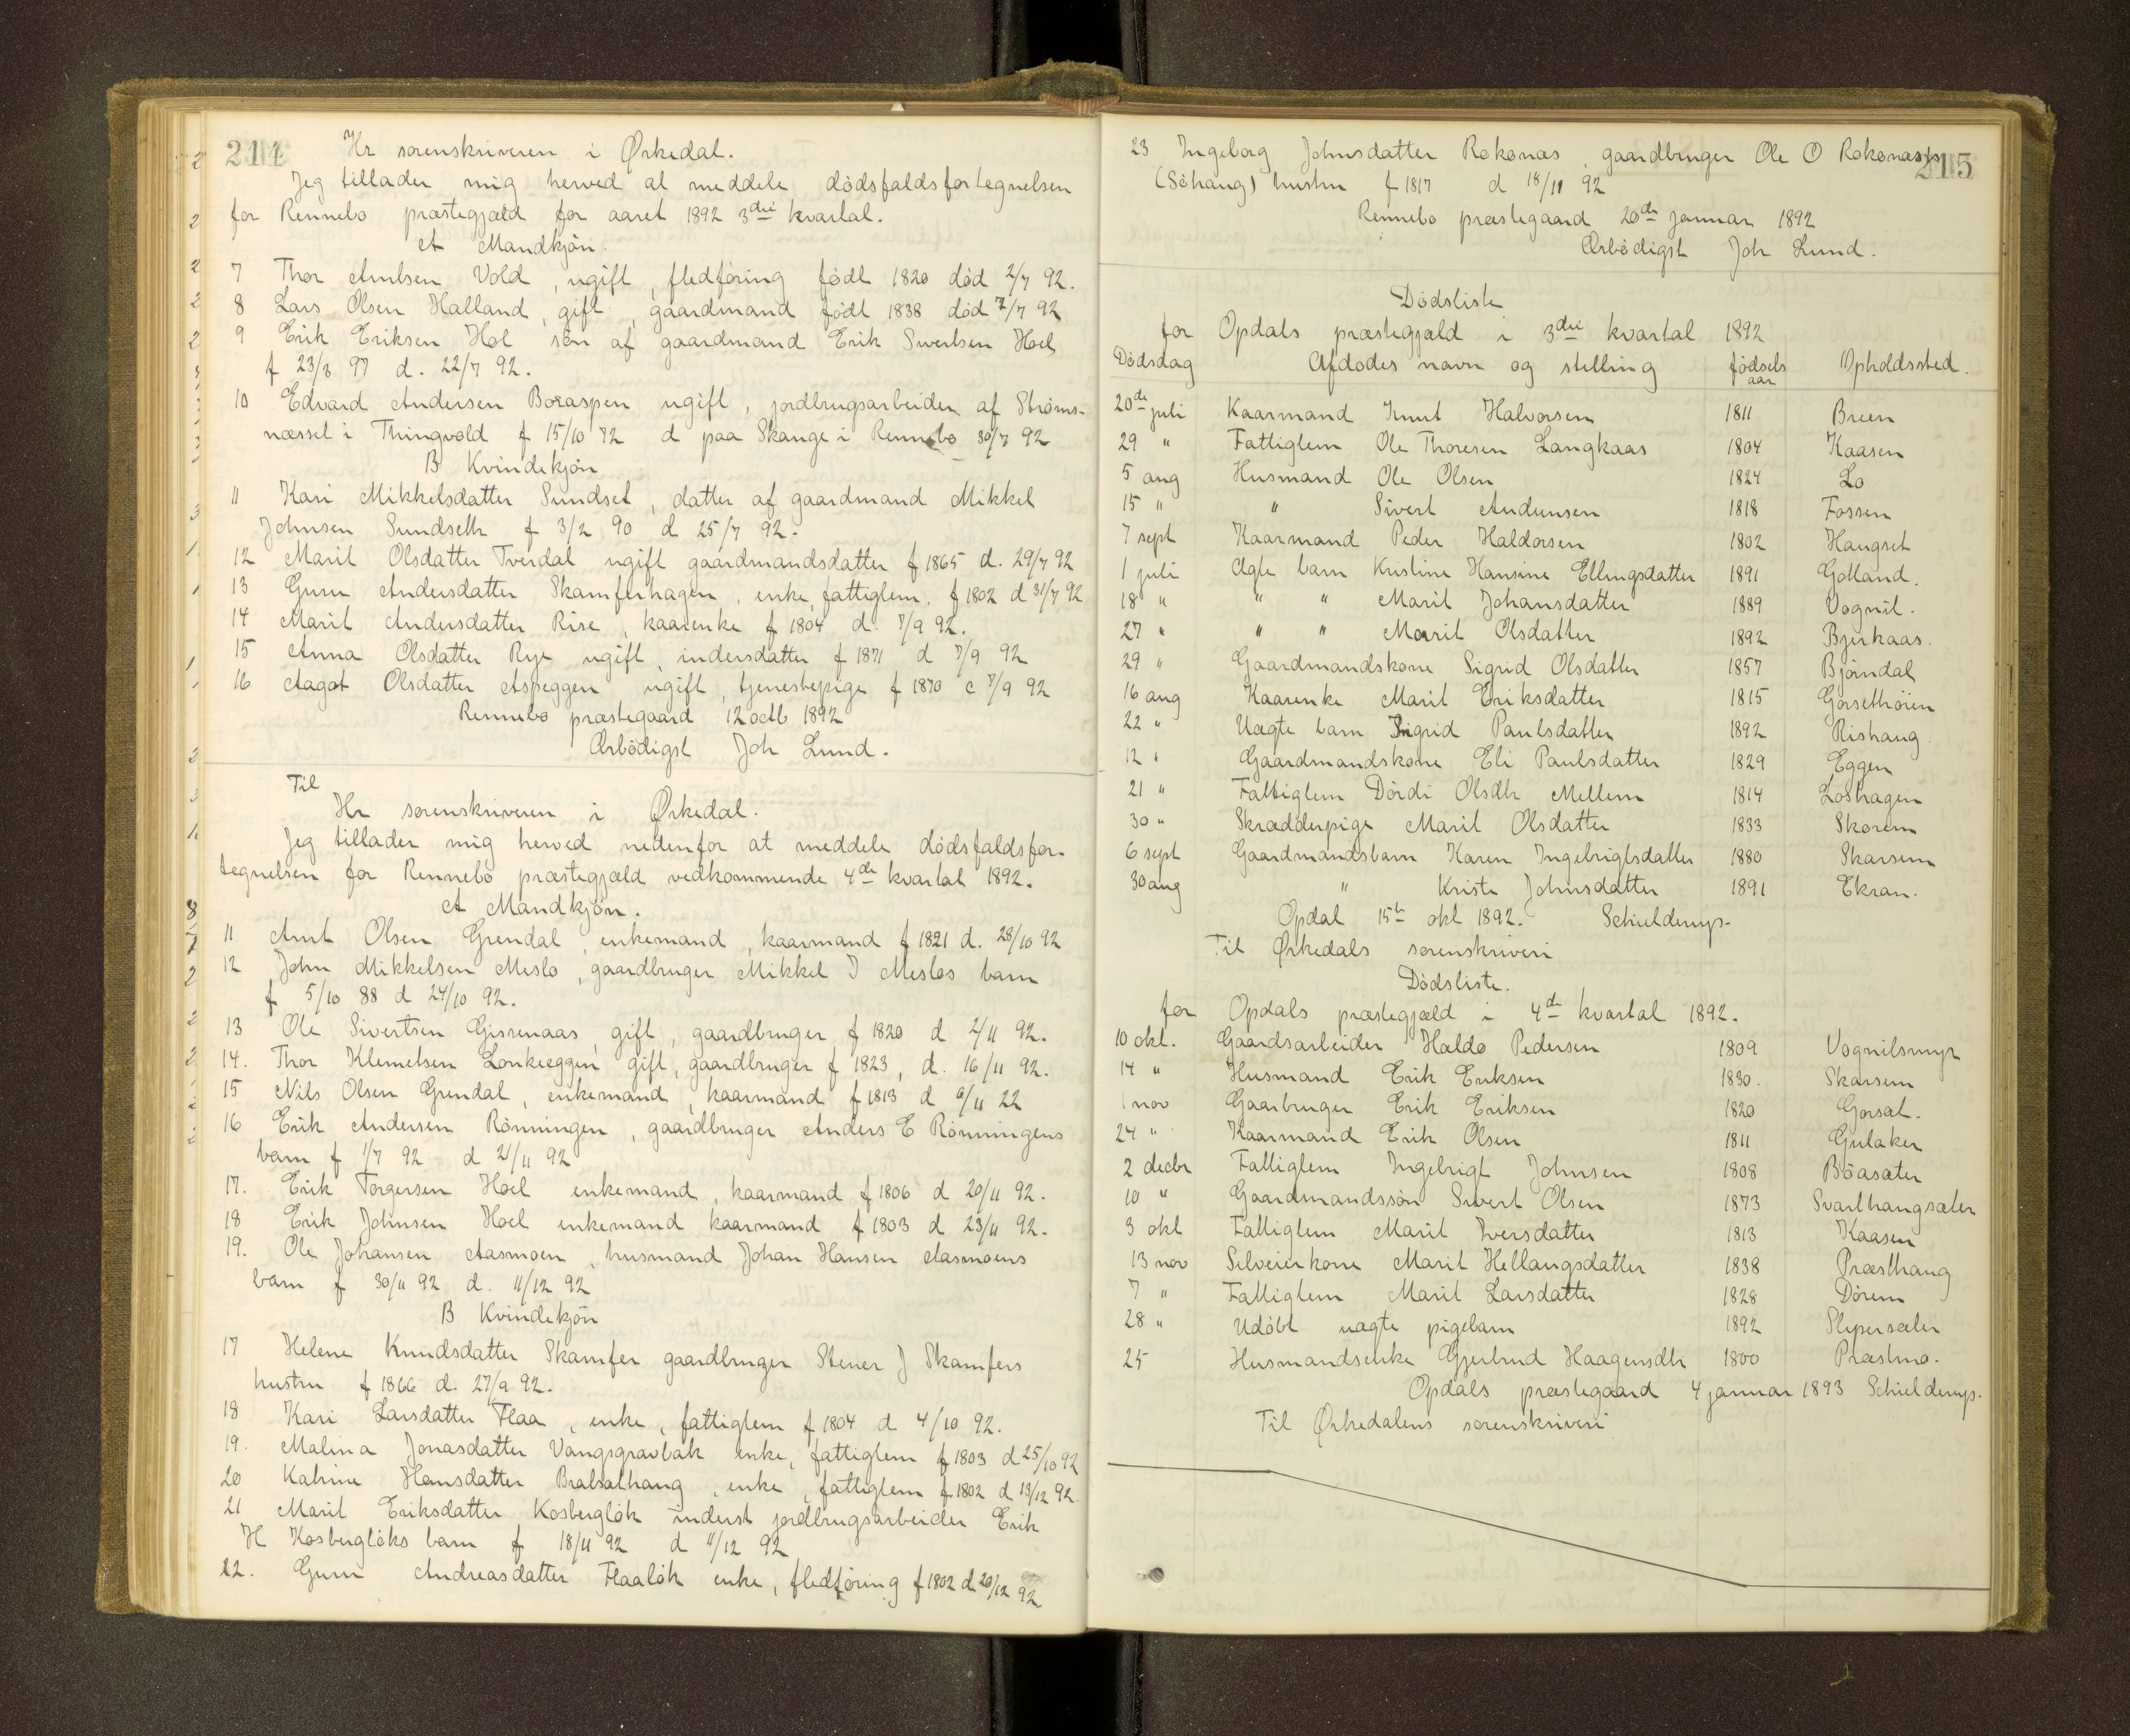 214
Hr sorenskriveren i Ørkedal.
Jeg tillader mig herved at meddele dödsfaldsfortegnelsen
for Rennebo præstegjæld for aaret 1892 3die kvartal.
A Mandkjön.
7 Thor Arntsen Vold, ugift, fledföring födt 1820 död 2/7 92.
8 Lars Olsen Halland, gift, gaardmand födt 1838 död 7/7 92
9 Erik Eriksen Hol sön af gaardmand Erik Sivertsen Hoel
f 23/3 97 d. 22/7 92.
10 Edvard Andersen Boraspen ugift, jordbrugsarbeider af Ströms-
næsset i Thingvold f 15/10 72 d paa Skauge i Rennebo 30/7 92
B Kvindekjön
11 Kari Mikkelsdatter Sundset, datter af gaardmand Mikkel
Johnsen Sundseth f 3/2 90 d 25/7 92.
12 Marit Olsdatter Tverdal ugift gaardmandsdatter f 1865 d. 29/7 92
13 Guru Andersdatter Skamferhagen, enke, fattiglem. f 1802 d 31/7 92
14 Marit Andersdatter Rise, kaarenke f 1804 d. 7/9 92.
15 Anna Olsdatter Rye ugift, indersdatter f 1871 d 7/9 92
16 Aagot Olsdatter Aspeggen ugift, tjenestepige f 1870 d 7/9 92
Rennebo præstegaard 12 octb 1892
Ærbödigst Joh Lund.
Til
Hr sorenskriveren i Ørkedal.
Jeg tillader mig herved nedenfor at meddele dödsfaldsfor-
tegnelsen for Rennebo præstegjæld vedkommende 4de kvartal 1892.
A Mandkjön.
11 Arnt Olsen Grendal, enkemand, kaarmand f 1821 d. 28/10 92
12 John Mikkelsen Meslo, gaardbruger Mikkel J Meslos barn
f 5/10 88 d 24/10 92.
13 Ole Sivertsen Gisrenaas, gift, gaardbruger f 1820 d 2/11 92.
14. Thor Klemetsen Lonkeeggen gift, gaardbruger f 1823, d. 16/11 92.
15 Nils Olsen Grendal, enkemand, kaarmand f 1813 d 6/11 22
16 Erik Andersen Rönningen, gaardbruger Anders E Rönningens
barn f 1/7 92 d 21/11 92
17. Erik Torgersen Hoel enkemand, kaarmand f 1806 d 20/11 92.
18 Erik Johnsen Hoel enkemand kaarmand f 1803 d 23/11 92.
19. Ole Johansen Aasmoen, husmand Johan Hansen Aasmoens
barn f 30/11 92 d. 11/12 92
B Kvindekjön
17 Helene Knudsdatter Skamfer gaardbruger Stener J Skamfers
hustru f 1866 d. 27/9 92.
18 Kari Larsdatter Flaa, enke, fattiglem f 1804 d 4/10 92.
19. Malina Jonasdatter Vangsgravbak enke, fattiglem f 1803 d 25/10 92
20 Katrine Hansdatter Brabathaug, enke, fattiglem f 1802 d 13/12 92.
21 Marit Eriksdatter Kosberglök inderst jordbrugsarbeider Erik
H Kosberglöks barn f 18/11 92 d 11/12 92
22. Guru Andreasdatter Flaalök enke, fledföring f 1802 d 20/12 92
215
23 Ingeborg Johnsdatter Rokonas, gaardbruger Ole O Rokonas's
(Söhaug) hustru f 1817 d 18/11 92
Rennebo præstegaard 20de januar 1892
Ærbödigst Joh Lund.
Dödsliste
for Opdals præstegjæld i 3die kvartal 1892
Dödsdag Afdödes navn og stelling födsels aar Opholdssted.
20de juli Kaarmand Knut Halvorsen 1811 Bruen
29 " Fattiglem Ole Thoresen Langkaas 1804 Kaasen
5 aug Husmand Ole Olsen 1824 Lo
15 " " Sivert Audunsen 1818 Fossen
7 sept Kaarmand Peder Haldorsen 1802 Haugset
1 juli Ægte barn Kristine Hansine Ellingsdatter 1891 Gotland.
18 " " " Marit Johansdatter 1889 Vognil.
27 " " " Marit Olsdatter 1892 Bjerkaas.
29 " Gaardmandskone Sigrid Olsdatter 1857 Björndal
16 aug Kaarenke Marit Eriksdatter 1815 Gorsethöien
22 " Uægte barn Ingrid Paulsdatter 1892 Rishaug
12 " Gaardmandskone Eli Paulsdatter 1829 Eggen
21 " Fattiglem Dördi Olsdtr Mellem 1814 Loshagen
30 " Skrædderpige Marit Olsdatter 1833 Skorem
6 sept Gaardmandsbarn Karen Ingebrigtsdatter 1880 Skarsem
30 aug " Kriste Johnsdatter 1891 Ekran.
Opdal 15te okt 1892. Schielderup.
Til Ørkedals sorenskriveri
Dödsliste.
for Opdals præstegjæld i 4de kvartal 1892.
10 okt. Gaardsarbeider Haldo Pedersen 1809 Vognilsmyr
14 " Husmand Erik Eriksen 1830. Skarsem
1 nov Gaarbruger Erik Eriksen 1820 Gorsæt.
24 " Kaarmand Erik Olsen 1811 Gulaker
2 decbr Fattiglem Ingebrigt Johnsen 1808 Böasæter
10 " Gaardmandssön Sivert Olsen 1873 Svarthaugsæter
3 okt Fattiglem Marit Iversdatter 1813 Kaasen
13 nov Selveierkone Marit Hellaugsdatter 1838 Præsthaug
7 " Fattiglem Marit Larsdatter 1828 Dörem
28 " Udöbt uægte pigebarn 1892 Slipersæter
25 Husmandsenke Gjertrud Haagensdtr 1800 Præstmo.
Opdals præstegaard 4 januar 1893 Schielderup.
Til Ørkedalens sorenskriveri